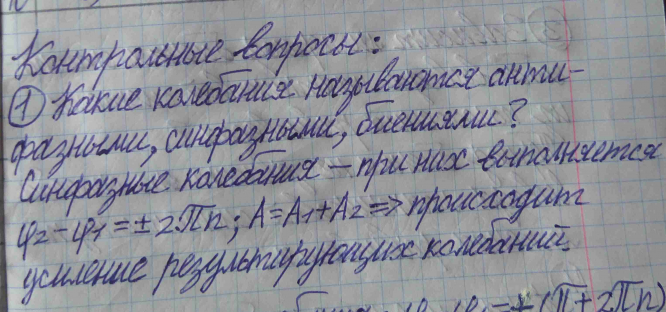 Контрольные вопросы:
① Какие колебания называются анти-
фазными, синфазными, биениями?
Синфазные колебания – при них выполняется
φ₂-φ₁=±2πn; A=A₁+A₂ => происходит
усиление результирующих колебаний.
=±(π+2πn)